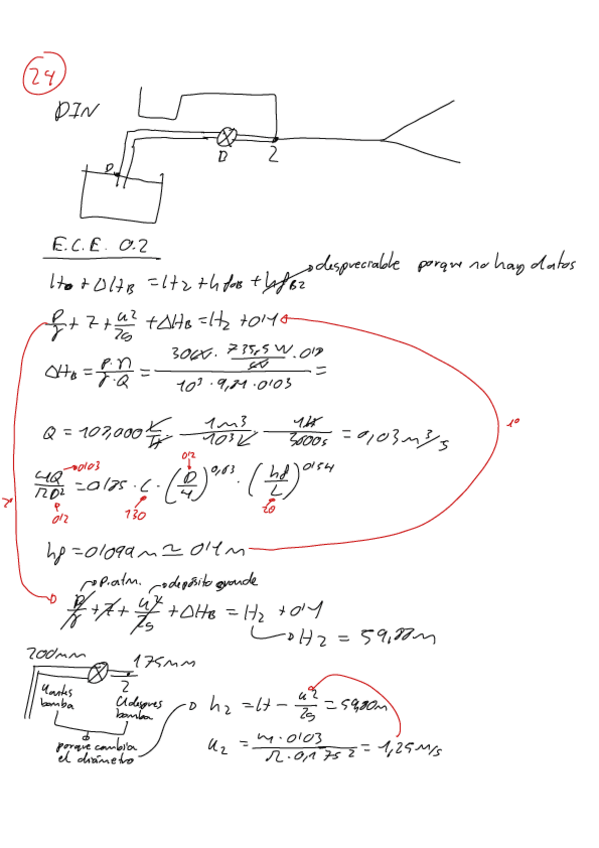 24
DIN
D
B
2
E.C.E. 0.2
H0 + ΔHB = H2 + hf0B + hfB2 → despreciable porque no hay datos
P/γ + z + u²/2g + ΔHB = H2 + 0'1
ΔHB = P·η/γ·Q = 30CV · 735,5W/CV · 0'8 / 10³ · 9,81 · 0'03 =
1º
Q = 107,000 l/H · 1m3/10³l · 1H/3600s = 0,03 m³/s
4Q/πD² = 0'85 · C · (D/4)^0,63 · (hf/L)^0'54
0'03
0'2
0'2
130
20
2º
hf = 0'099m ≃ 0'1m
p.atm. → depósito grande
P/γ + z + u²/2g + ΔHB = H2 + 0'1
→ H2 = 59,88m
200mm
175mm
2
U antes bomba
U despues bomba
porque cambia el diámetro
h2 = H − u²/2g = 59,80m
u2 = 4·0'03/π·0,175² = 1,25 m/s